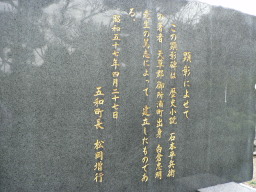 顕彰によせて
この顕彰碑は 歴史小説 石本平兵衛
の著者 天草郡御所浦町出身 白倉忠明
先生の篤志によって 建立したものであ
る
昭和五十七年四月二十七日
五和町長 松岡揩行